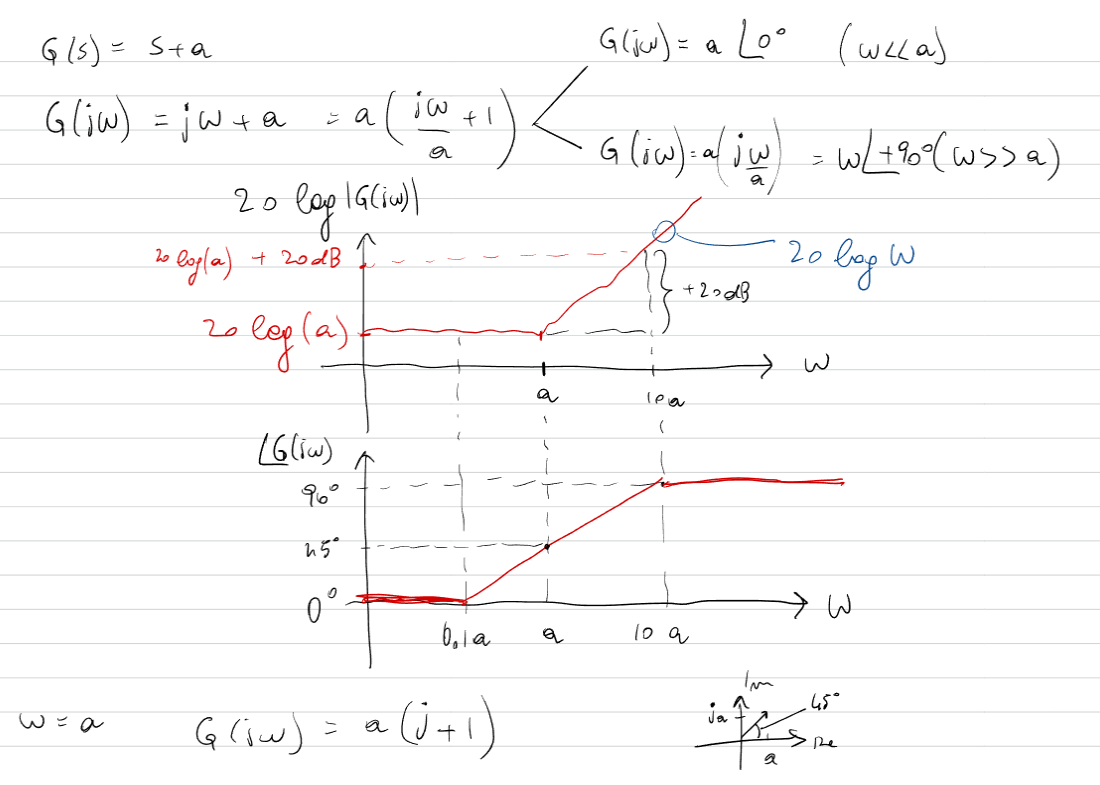 G(s) = s+a
G(jω) = jω + a = a(jω/a + 1)
G(jω) = a ∠0° (ω<<a)
G(jω) = a(jω/a) = ω∠+90° (ω>>a)
20 log |G(jω)|
20 log(a) + 20dB
20 log ω
+20dB
20 log(a)
ω
a
10a
∠G(jω)
90°
45°
0°
ω
0,1a
a
10 a
ω = a
G(jω) = a(j+1)
Im
ja
45°
Re
a